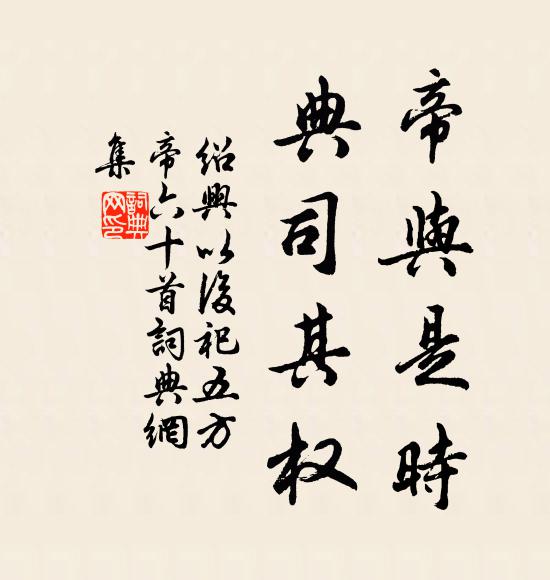 帝與是時
典司其权
紹興以後祀五方
帝六十首詞典網
集
詞典网印